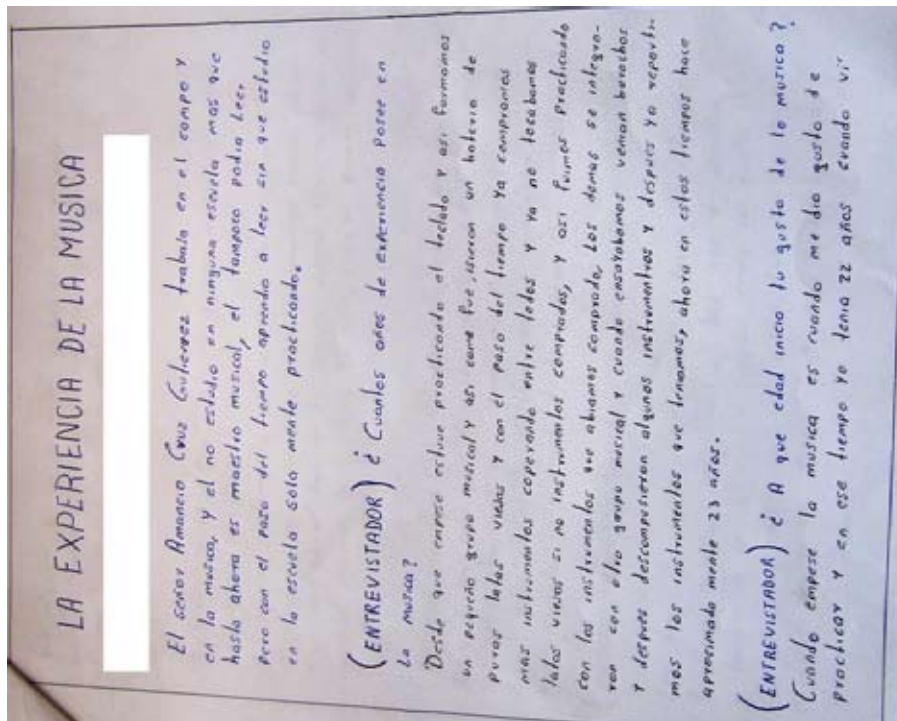 LA EXPERIENCIA DE LA MUSICA
El señor Amancio Cruz Gutierrez trabaja en el campo y
en la musica, y el no estudio en ninguna escuela mas que
hasta ahora es maestro musical, el tampoco podia Leer
Pero con el paso del tiempo aprendio a leer sin que estudio
en la escuela solo mente practicando.
(ENTREVISTADOR) ¿ Cuantos años de experiencia posee en
La musica?
Desde que empese estuve practicando el teclado y asi formamos
un pequeño grupo musical y asi como fue, isieron un bateria de
puras latas viejas y con el paso del tiempo ya compramos
mas instrumentos coperando entre todos y ya no tocabamos
latas viejas si no instrumentos comprados, y asi fuimos practicando
con los instrumentos que abiamos comprado, Los demas se integra-
ron con otro grupo musical y cuando ensayabamos venian borachos
y despues descompusieron algunos instrumentos y despues ya reparti-
mos los instrumentos que teniamos, ahora en estos tiempos hace
aproximada mente 23 años.
(ENTREVISTADOR) ¿ A que edad inicio tu gusto de la musica?
Cuando empese la musica es cuando me dio gusto de
practicar y en ese tiempo yo tenia 22 años cuando vi